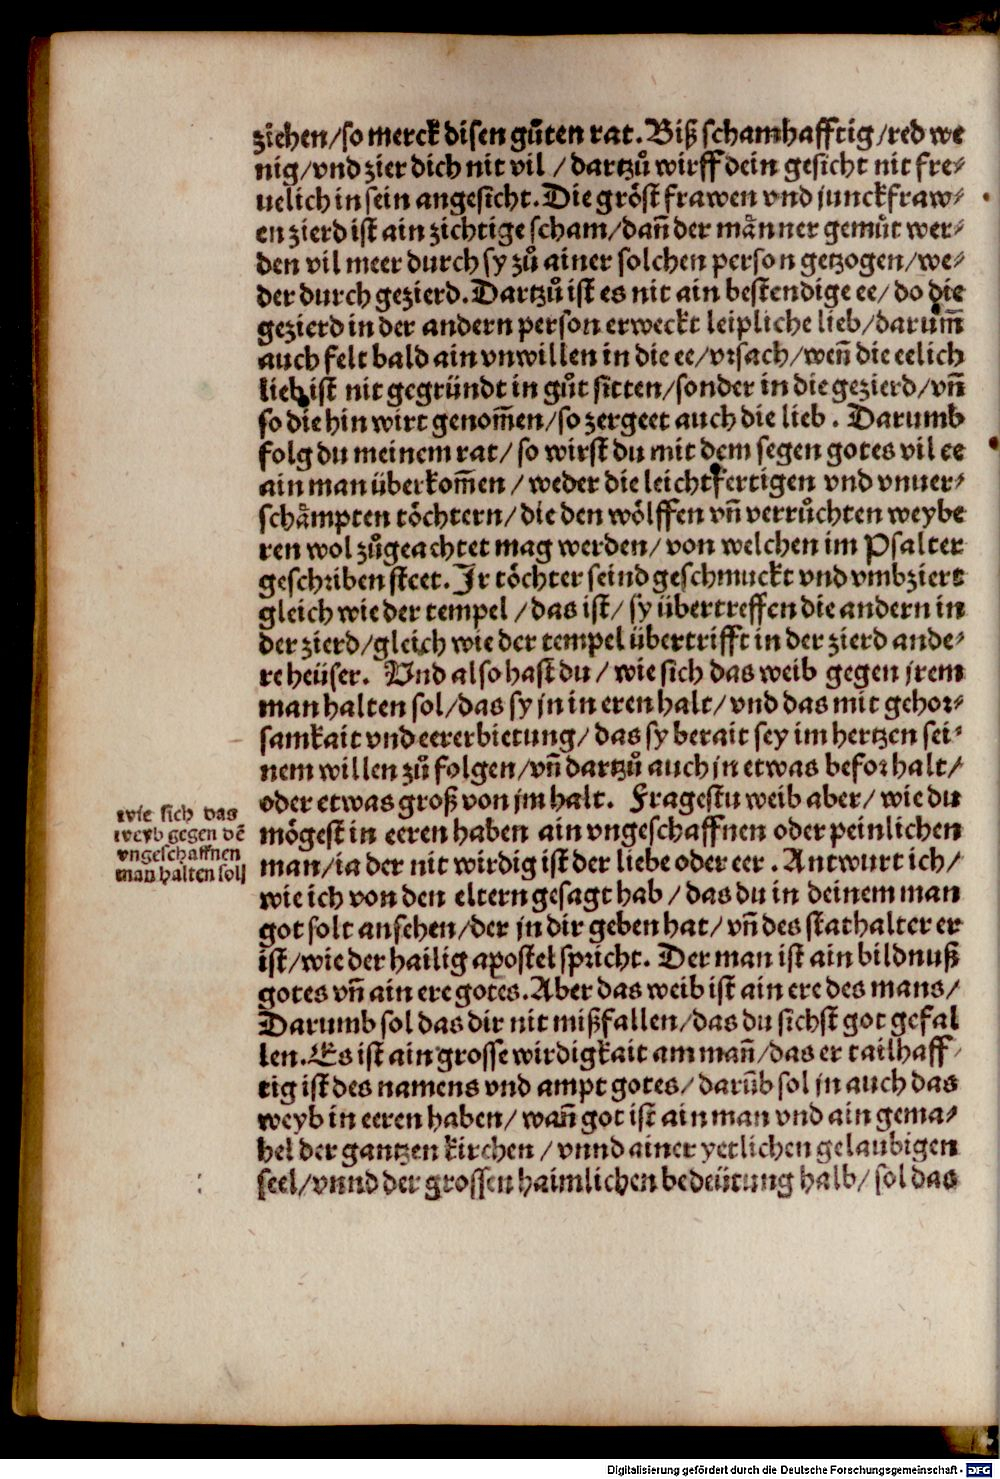 ziehen/so merck disen gůten rat. Biß schamhafftig/red we
nig/vnd zier dich nit vil / dartzů wirff dein gesicht nit fre⸗
uelich in sein angesicht. Die gröst frawen vnd junckfraw⸗
en zierd ist ain zichtige scham/dañ der männer gemůt wer⸗
den vil meer durch sy zů ainer solchen person getzogen/we⸗
der durch gezierd. Dartzů ist es nit ain bestendige ee/ do die
gezierd in der andern person erweckt leipliche lieb/darum̃
auch felt bald ain vnwillen in die ee/vrsach/weñ die eelich
lieb ist nit gegründt in gůt sitten/sonder in die gezierd/vñ
so die hin wirt genom̃en/so zergeet auch die lieb. Darumb
folg du meinem rat/ so wirst du mit dem segen gotes vil ee
ain man überkom̃en / weder die leichtfertigen vnd vnuer⸗
schämpten töchtern/ die den wölffen vñ verrůchten weybe
ren wol zůgeachtet mag werden/ von welchen im Psalter
geschriben steet. Jr töchter seind geschmuckt vnd vmbziert
gleich wie der tempel /das ist/ sy übertreffen die andern in
der zierd/gleich wie der tempel übertrifft in der zierd ande⸗
re heüser. Vnd also hast du / wie sich das weib gegen jrem
man halten sol/das sy jn in eren halt/ vnd das mit gehor⸗
samkait vnd eererbietung/ das sy berait sey im hertzen sei⸗
nem willen zů folgen/vñ dartzů auch jn etwas befor halt/
oder etwas groß von jm halt. Fragestu weib aber/ wie du
mögest in eeren haben ain vngeschaffnen oder peinlichen
man/ia der nit wirdig ist der liebe oder eer. Antwurt ich/
wie ich von den eltern gesagt hab / das du in deinem man
got solt ansehen/der jn dir geben hat/ vñ des stathalter er
ist/wie der hailig apostel spricht. Der man ist ain bildnuß
gotes vñ ain ere gotes. Aber das weib ist ain ere des mans/
Darumb sol das dir nit mißfallen/das du sichst got gefal
len. Es ist ain grosse wirdigkait am mañ/das er tailhaff⸗
tig ist des namens vnd ampt gotes/ darũb sol jn auch das
weyb in eeren haben/ wañ got ist ain man vnd ain gema⸗
hel der gantzen kirchen / vnnd ainer yetlichen gelaubigen
seel/vnnd der grossen haimlichen bedeütung halb/ sol das
wie sich das
weyb gegen dẽ
vngeschaffnen
man halten soll
Digitalisierung gefördert durch die Deutsche Forschungsgemeinschaft - DFG